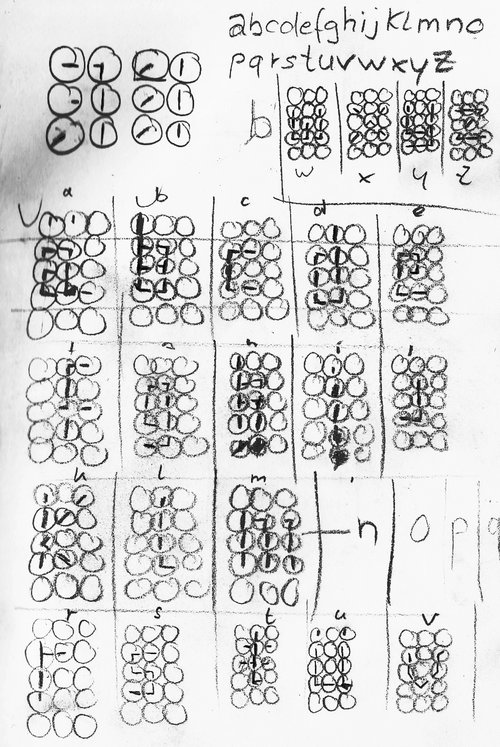 abcdefghijklmno
pqrstuvwxyz
b
w x y z
a b c d e
f g h i j
k l m n o p q
r s t u v